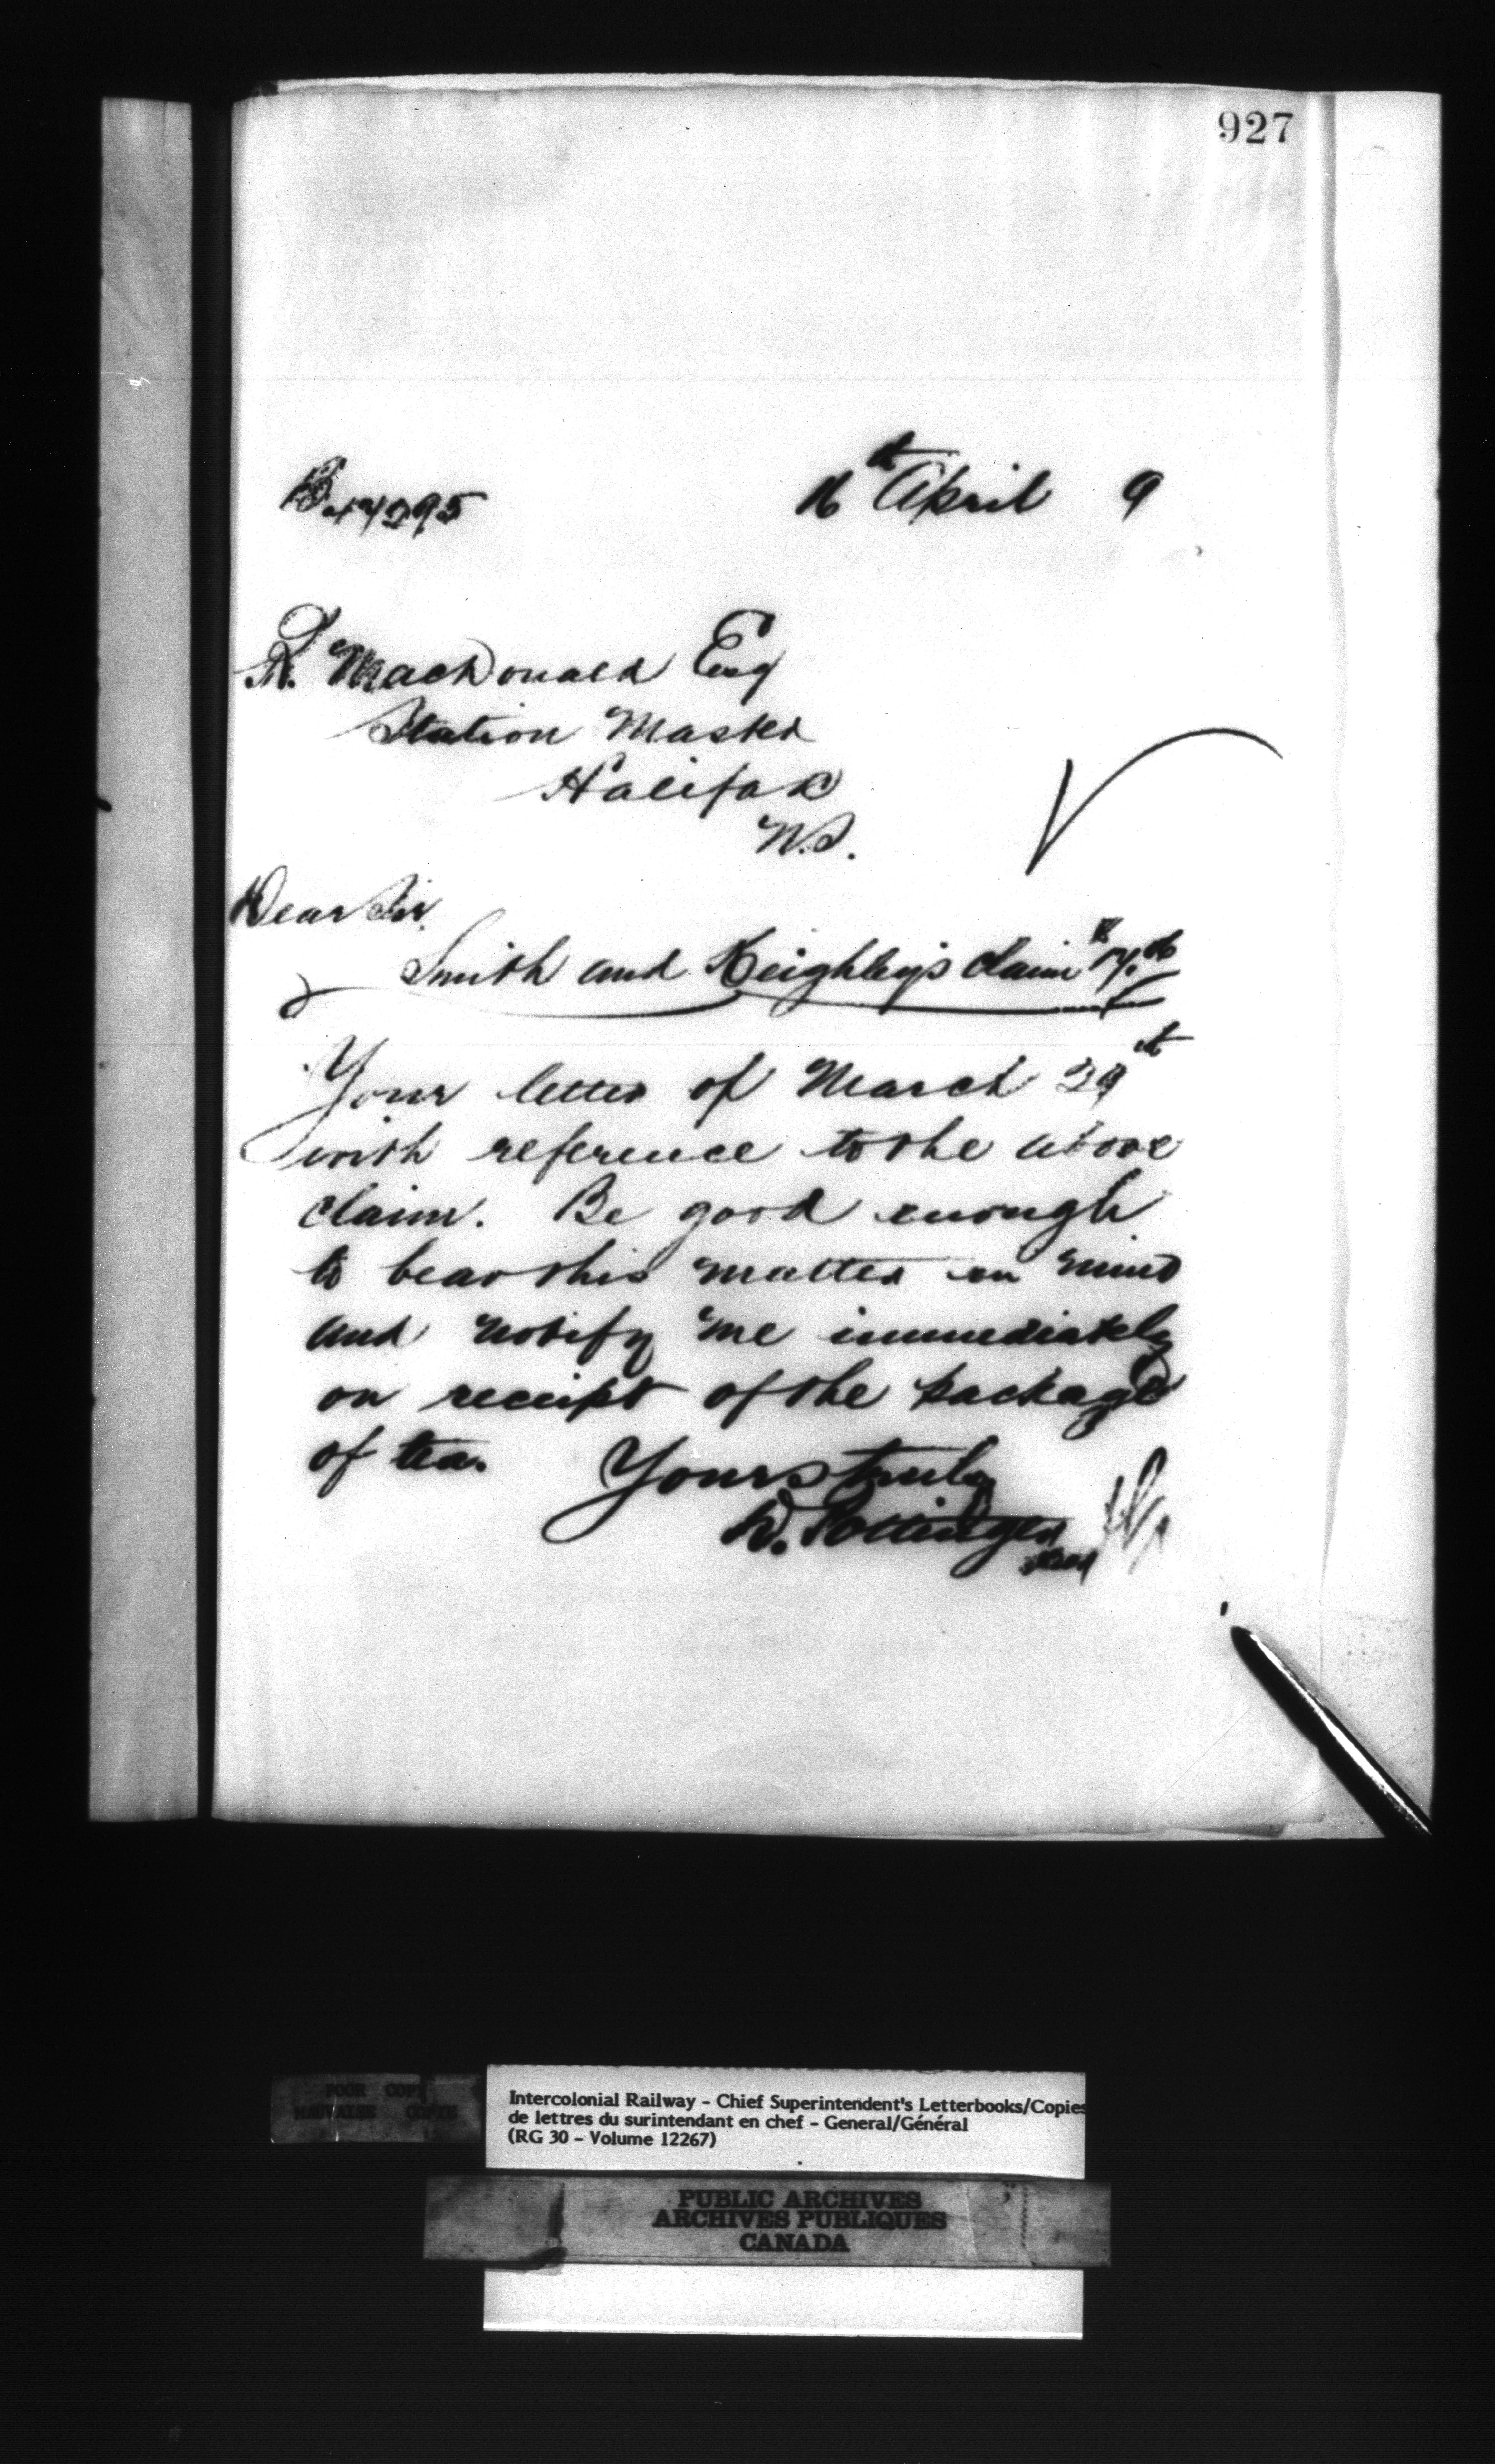 927
16th April 9
R. MacDonald Esq
Station Master
Halifax
N.S.
Dear Sir,
Smith and Keighley's claim
Your letter of March 29th
with reference to the above
claim. Be good enough
to bear this matter in mind
and notify me immediately
on receipt of the package
of tea. Yours truly
D. Pottinger
POOR COPY
MAUVAISE COPIE
Intercolonial Railway - Chief Superintendent's Letterbooks/Copies
de lettres du surintendant en chef - General/Général
(RG 30 - Volume 12267)
PUBLIC ARCHIVES
ARCHIVES PUBLIQUES
CANADA